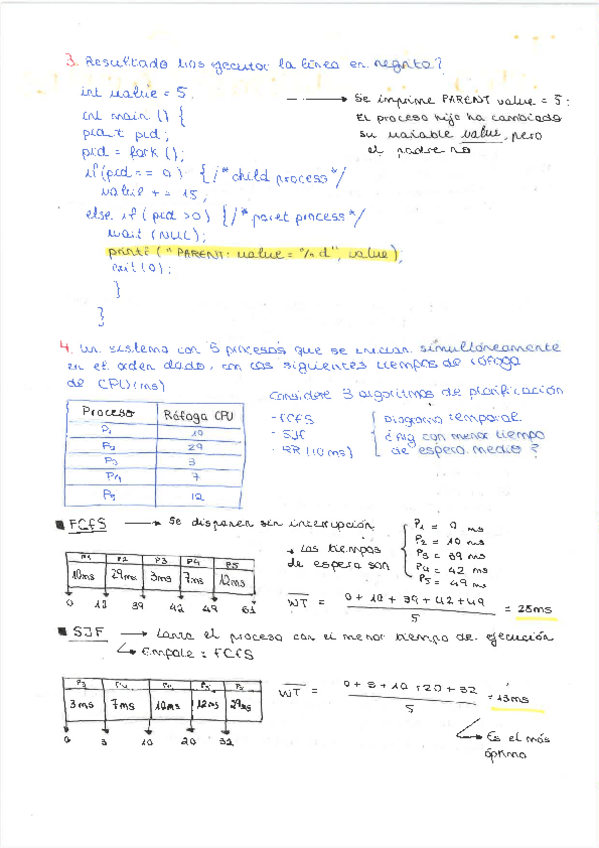 3. Resultado tras ejecutar la línea en negrita?
int value = 5.
int main () {
pid_t pid;
pid = fork ();
if (pid == 0) { /* child process */
value += 15;
else if (pid > 0) { /* paret process */
wait (NULL);
printf (" PARENT: value = %d", value);
exit (0);
}
}
→ Se imprime PARENT value = 5:
El proceso hijo ha cambiado
su variable value, pero
el padre no
4. Un sistema con 5 procesos que se inician simultáneamente
en el orden dado, con los siguientes tiempos de ráfaga
de CPU (ms)
Proceso Ráfaga CPU
P1 10
P2 29
P3 3
P4 7
P5 12
Considere 3 algoritmos de planificación
- FCFS
- SJF
- RR (10 ms)
Diagrama temporal
¿Alg con menor tiempo
de espera medio?
FCFS → Se disponen sin interrupción
P1 P2 P3 P4 P5
10ms 29ms 3ms 7ms 12ms
0 10 39 42 49 61
→ Los tiempos
de espera son
P1 = 0 ms
P2 = 10 ms
P3 = 39 ms
P4 = 42 ms
P5 = 49 ms
WT = 0 + 10 + 39 + 42 + 49 / 5 = 28ms
SJF → Lanza el proceso con el menor tiempo de ejecución
↳ Empate = FCFS
P3 P4 P1 P5 P2
3ms 7ms 10ms 12ms 29ms
0 3 10 20 32
WT = 0 + 3 + 10 + 20 + 32 / 5 = 13ms
↳ Es el más
óptimo